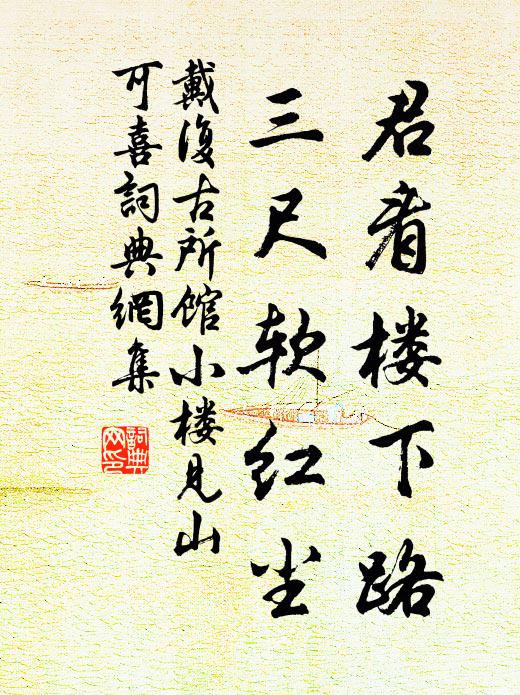 君看楼下路
三尺软红尘
戴復古所館小楼見山
可喜詞典網集
詞典
网印